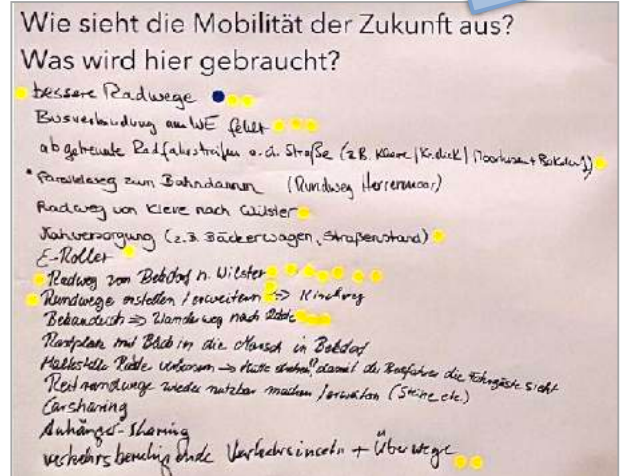 Wie sieht die Mobilität der Zukunft aus?
Was wird hier gebraucht?
bessere Radwege
Busverbindung am WE fehlt
abgetrennte Radfahrstreifen a.d. Straße (z.B. Kleve | | Moorhusen + Bokdorf)
Parallelweg zum Bahndamm (Rundweg Herrenmoor)
Radweg von Kleve nach Wilster
Nahversorgung (z.B. Bäckerwagen, Straßenstand)
E-Roller
Radweg von Bekdorf n. Wilster
Rundwege erstellen / erweitern => Kirchweg
=> Wanderweg nach
Rastplatz mit Blick in die Marsch in Bekdorf
Haltestelle verbessern → Hütte drehen? damit der Busfahrer die Fahrgäste sieht
Reitrundwege wieder nutzbar machen / erweitern (Steine etc.)
Carsharing
Anhänger-Sharing
verkehrsberuhigende Verkehrsinseln + Überwege